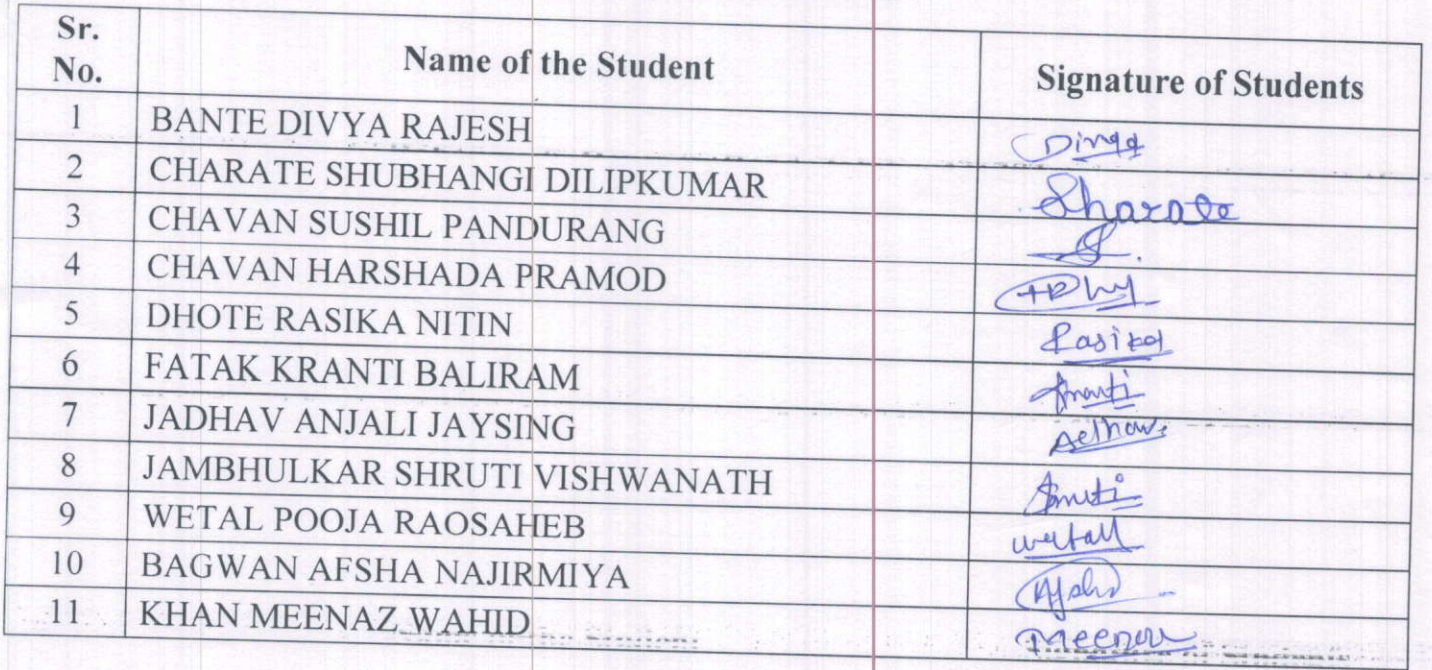 Sr. No. Name of the Student Signature of Students
1 BANTE DIVYA RAJESH
2 CHARATE SHUBHANGI DILIPKUMAR Sharate
3 CHAVAN SUSHIL PANDURANG
4 CHAVAN HARSHADA PRAMOD
5 DHOTE RASIKA NITIN Rasika
6 FATAK KRANTI BALIRAM
7 JADHAV ANJALI JAYSING
8 JAMBHULKAR SHRUTI VISHWANATH
9 WETAL POOJA RAOSAHEB
10 BAGWAN AFSHA NAJIRMIYA
11 KHAN MEENAZ WAHID